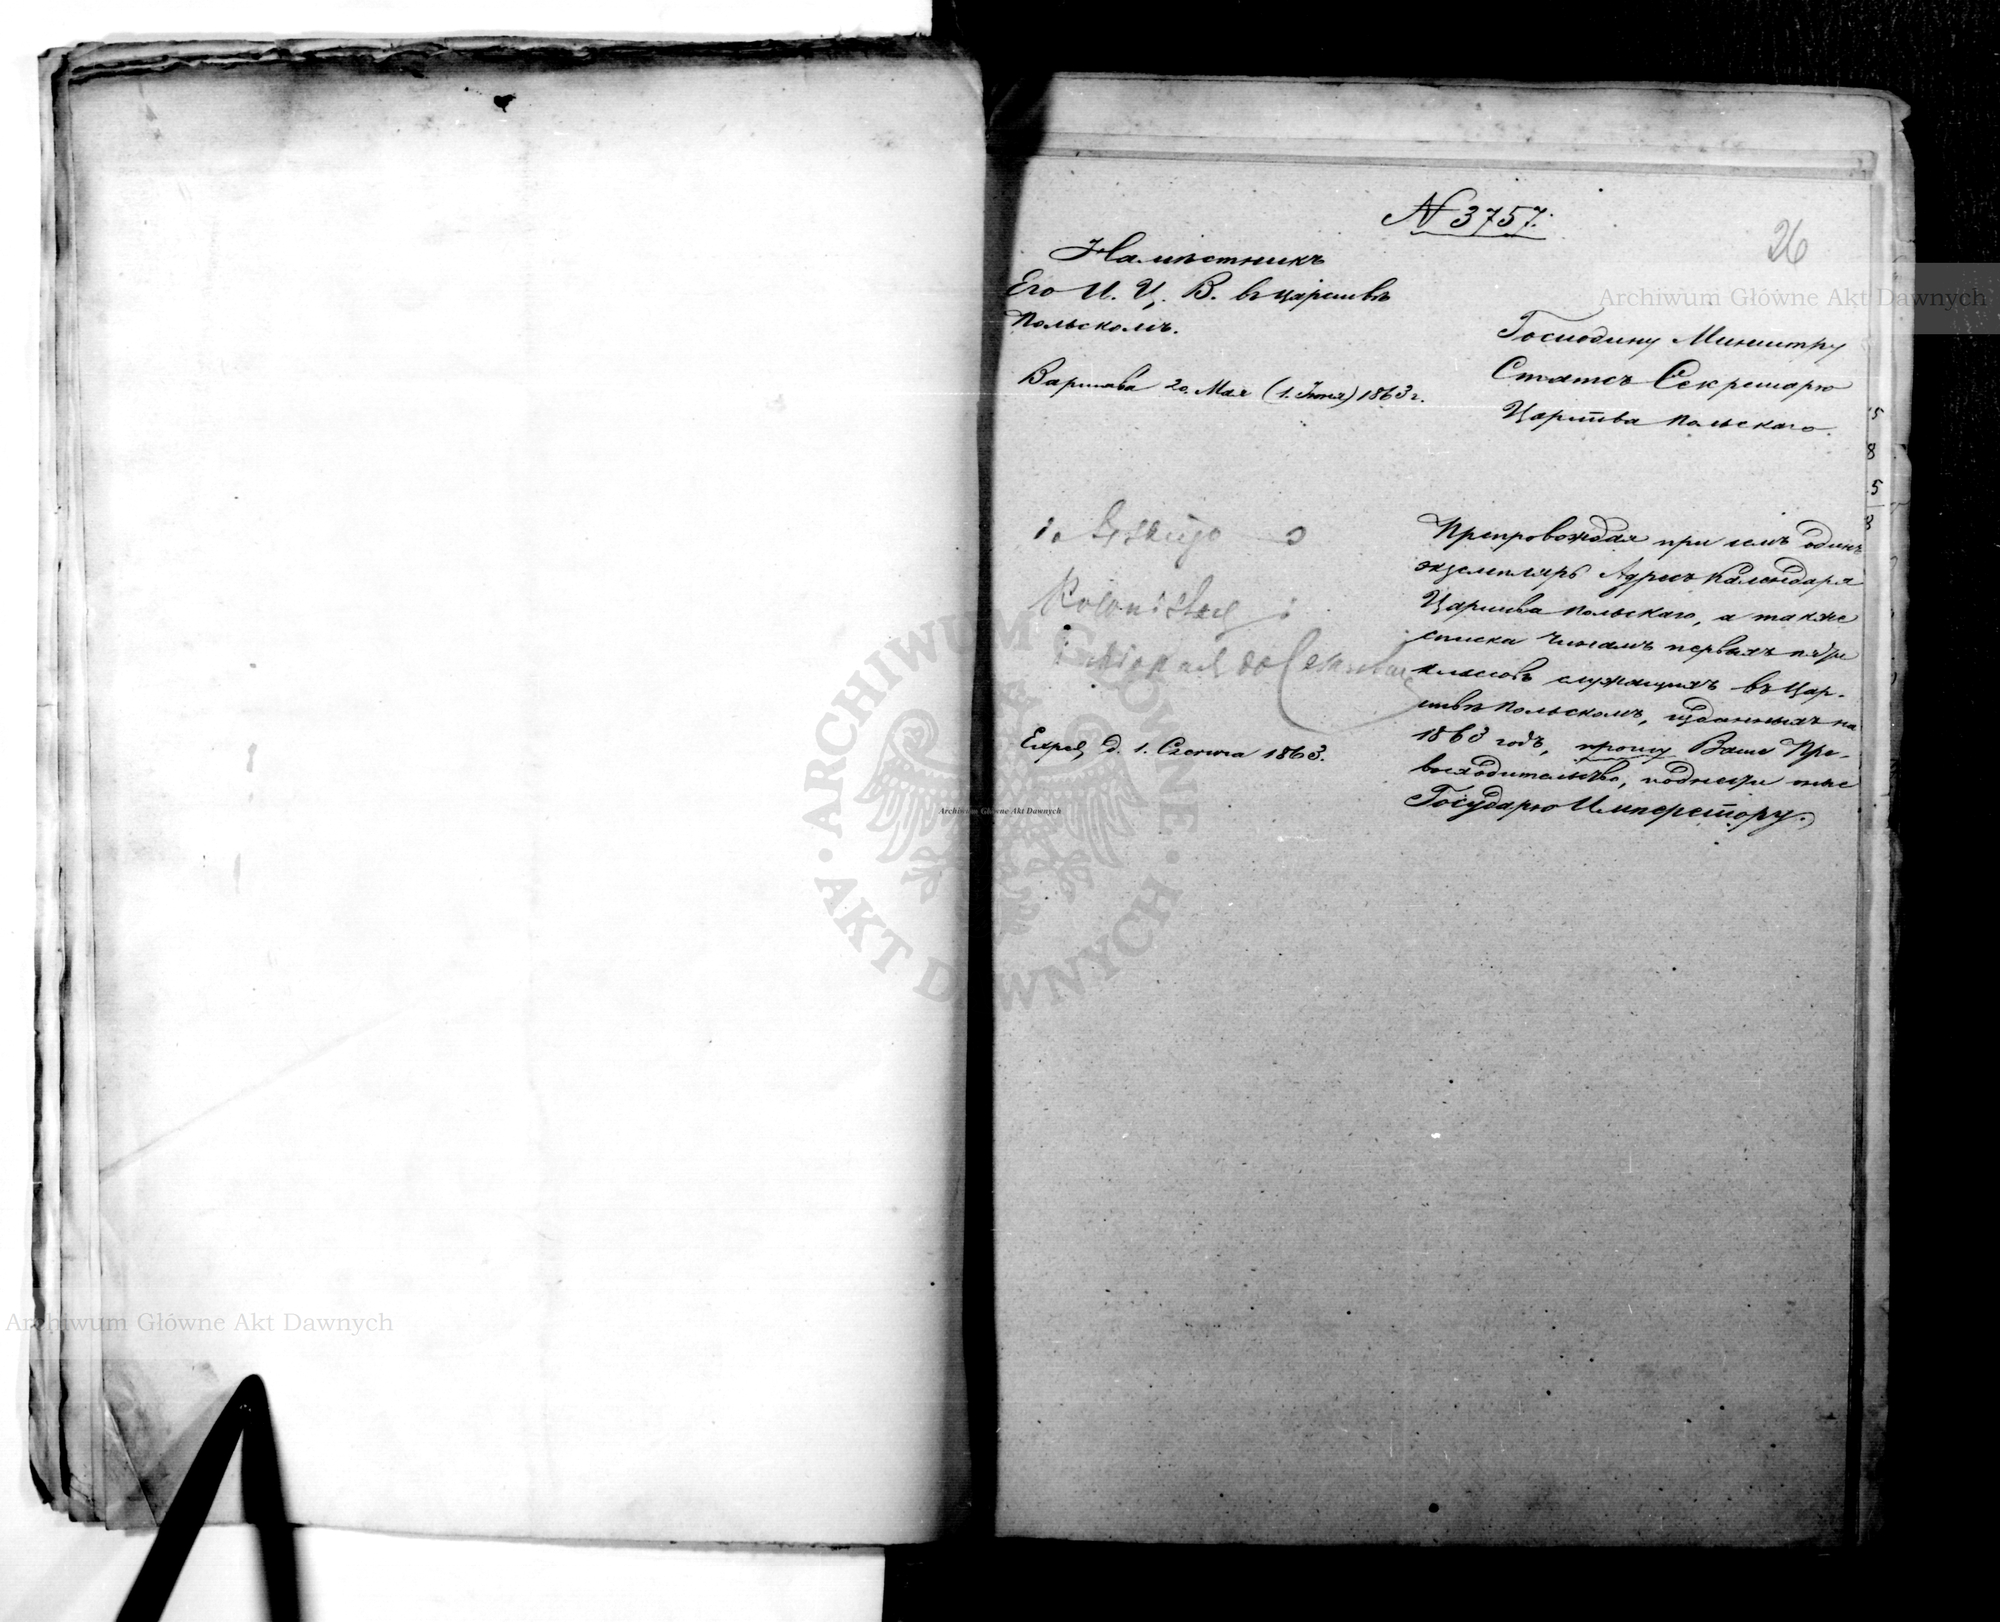 № 3757.
26
Намѣстникъ
Его И. Ц. В. въ царствѣ
Польскомъ.
Варшава 20 Мая (1. Іюня) 1863 г.
Господину Министру
Статсъ Секретарю
Царства Польскаго.
Препровождая при семъ одинъ
экземпляръ Адресъ Календаря
Царства Польскаго, а также
списка чинамъ первыхъ пяти
классовъ служащихъ въ Цар-
ствѣ Польскомъ, изданныхъ на
1863 годъ, прошу Ваше Пре-
восходительство, поднести оные
Государю Императору.
Exped. d. 1. Czerwca 1863.
5
8
5
3
Archiwum Główne Akt Dawnych
ARCHIWUM GŁÓWNE
AKT DAWNYCH
Archiwum Główne Akt Dawnych
Archiwum Główne Akt Dawnych